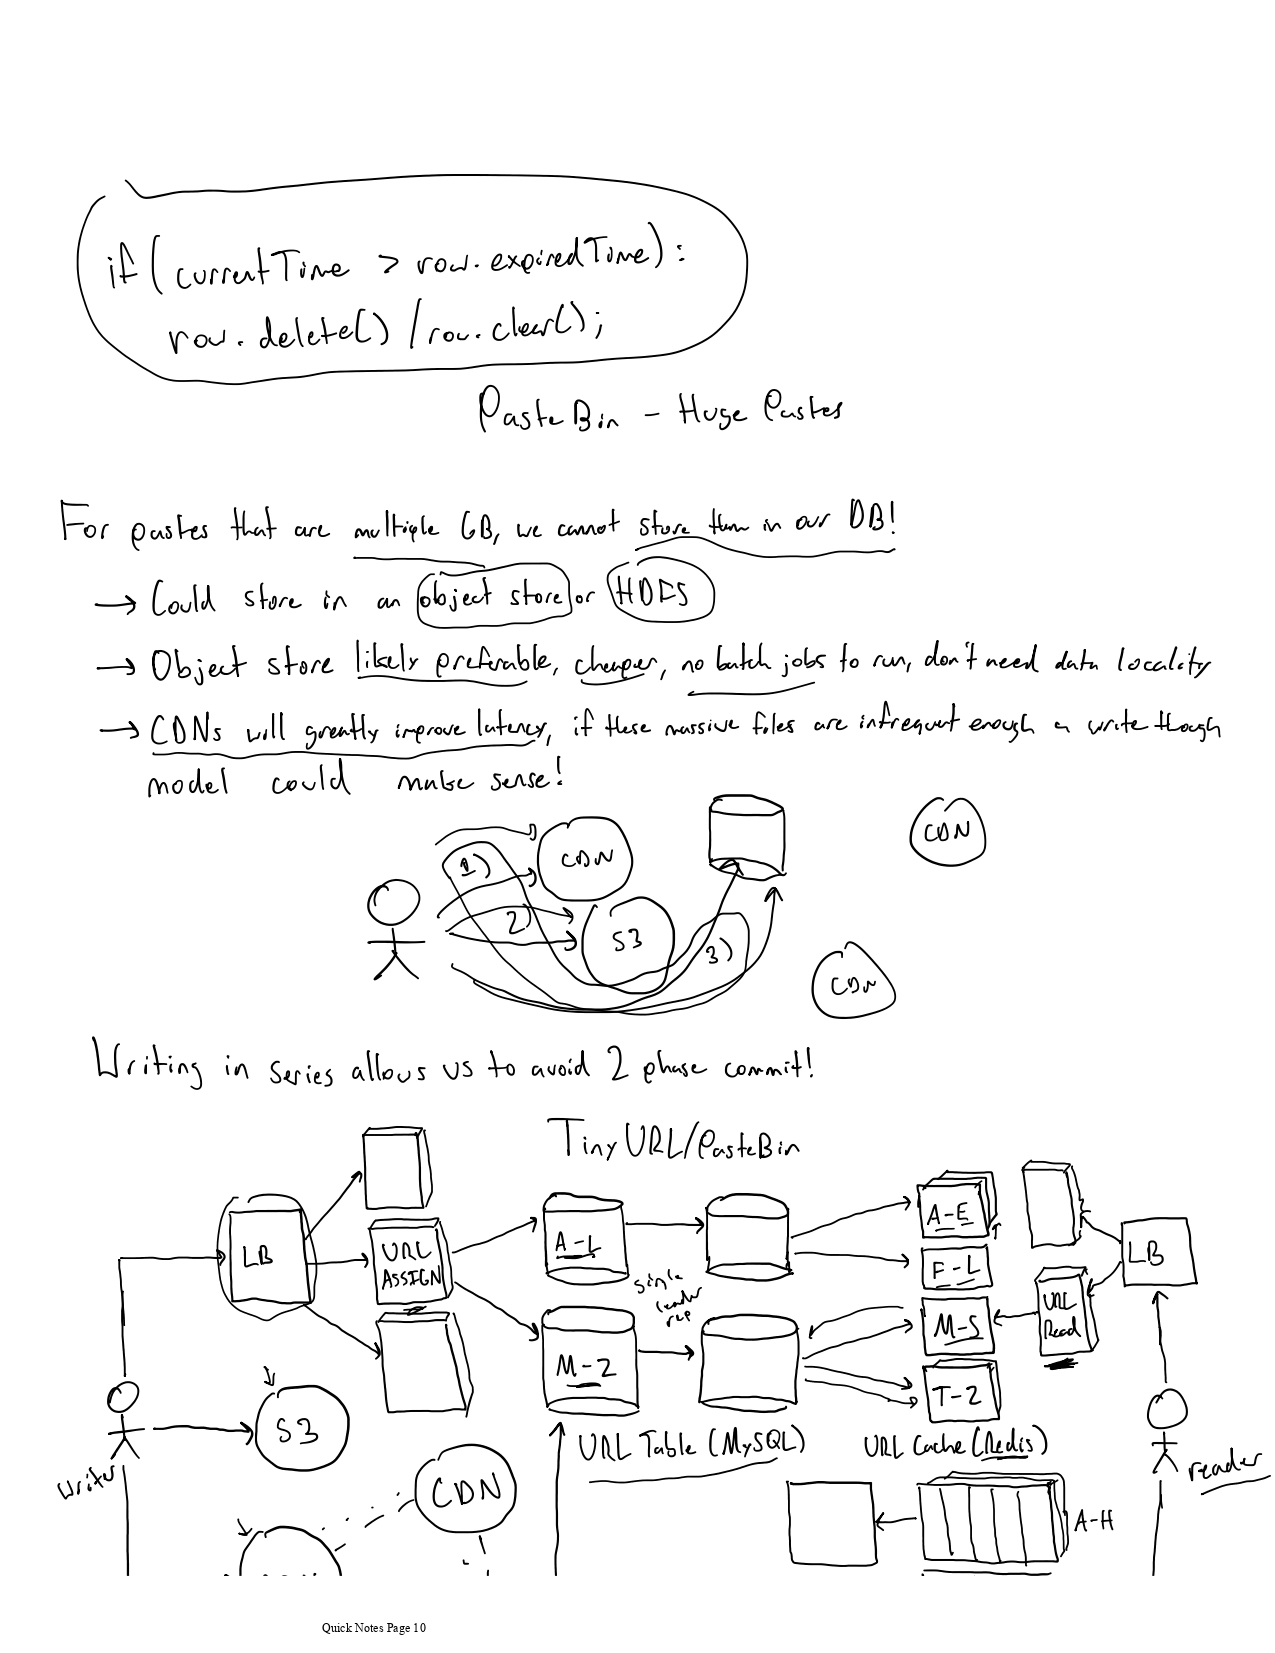 if (currentTime > row.expiredTime):
row.delete() / row.clear();
PasteBin - Huge Pastes
For pastes that are multiple GB, we cannot store them in our DB!
→ Could store in an object store or HDFS
→ Object store likely preferable, cheaper, no batch jobs to run, don't need data locality
→ CDNs will greatly improve latency, if these massive files are infrequent enough a write though
model could make sense!
CDN
1)
CDN
2)
S3
3)
CDN
Writing in series allows us to avoid 2 phase commit!
TinyURL/PasteBin
LB
URL
ASSIGN
A-L
single
leader
rep
M-Z
A-E
F-L
M-S
T-Z
URL
Read
LB
S3
writer
URL Table (MySQL)
URL Cache (Redis)
reader
CDN
A-H
Quick Notes Page 10